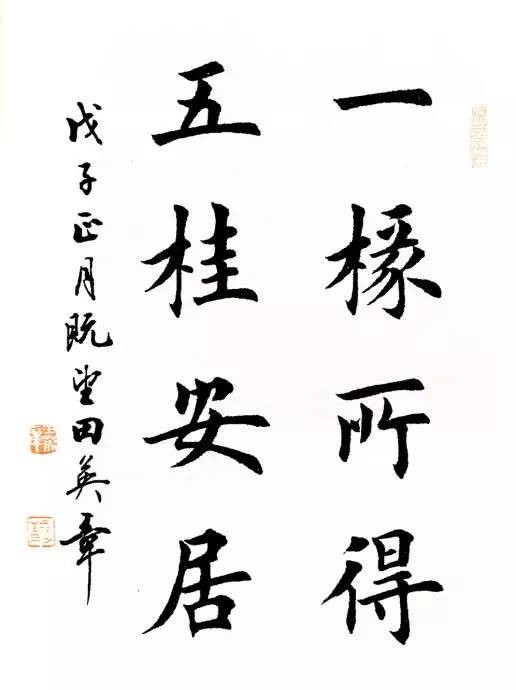 一椽所得
五桂安居
戊子正月既望田英章